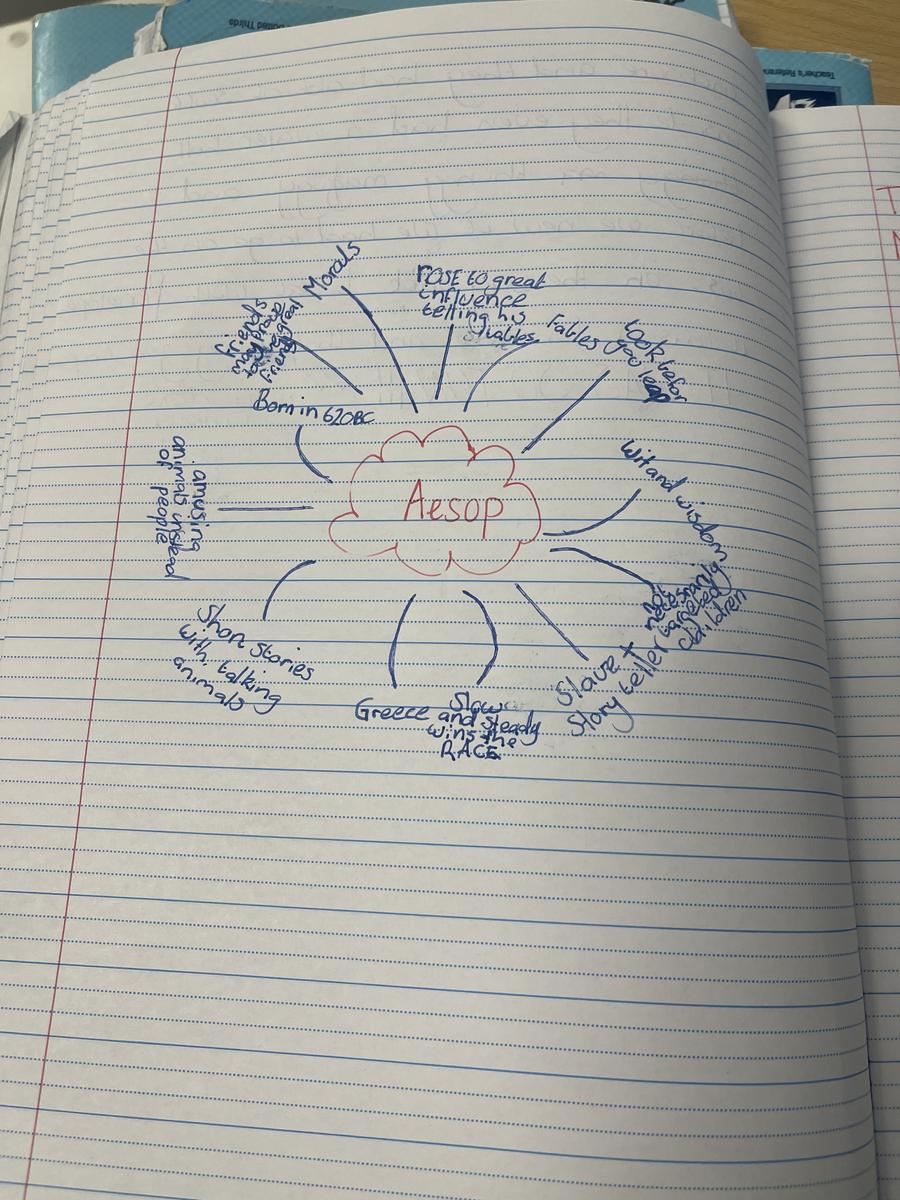 Dotted Thirds
Teacher's Reference
Morals
rOSE to great
influence
telling his
fables
Fables
look befor
you leap
friends
may prove
great
friends
Born in 620BC
Aesop
Wit and wisdom
amusing
animals instead
of people
not
necesarily
targeted
children
Short stories
with talking
animals
Slave +
Story teller
Greece
Slow
and steady
wins the
RACE